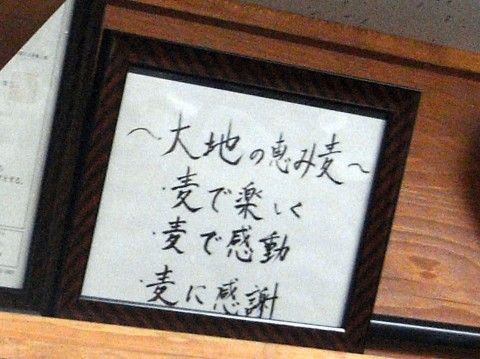 ～大地の恵み麦～
・麦で楽しく
・麦で感動
・麦に感謝